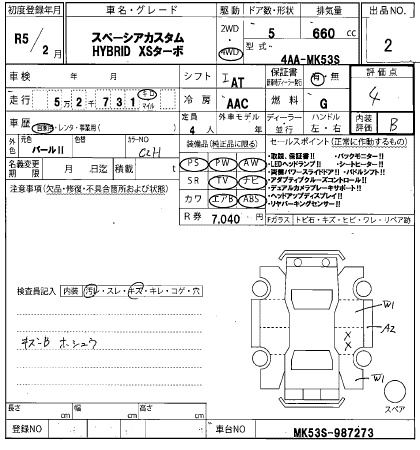 初度登録年月
車名・グレード
駆動 ドア数・形状 排気量
出品NO.
R5/2月
スペーシアカスタム
HYBRID XSターボ
2WD
4WD
5
660 cc
型式
4AA-MK53S
2
車検 年 月
シフト IAT
保証書
有・無
評価点
走行 5万2千731 キロ マイル
冷房 AAC
燃料 G
4
車歴 自家用・レンタ・事業用( )
定員 4人
外車モデル 年
ディーラー・並行
ハンドル 左・右
内装評価 B
外色 元色 パールII
色替
カラーNO ZLH
装備品(純正品に限る)
セールスポイント(正常に作動するもの)
名義変更期限 月 日迄
積載 t
PS PW AW
SR TV ナビ
カワ エアB ABS
・取説、保証書!! ・バックモニター!!
・LEDヘッドランプ!! ・シートヒーター!!
・両側パワースライドドア!! ・パドルシフト!!
・アダプティブクルーズコントロール!!
・デュアルカメラブレーキサポート!!
・ヘッドアップディスプレイ!!
・リヤパーキングセンサー!!
注意事項(欠品・修復・不具合箇所および状態)
R券 7,040 円
Fガラス トビ石・キズ・ヒビ・ワレ・リペア跡
検査員記入 内装 汚レ・スレ・キズ・キレ・コゲ・穴
キズ・B ホシュウ
W1
A2
X
X
W1
スペア
長さ cm
幅 cm
高さ cm
登録NO
車台NO MK53S-987273